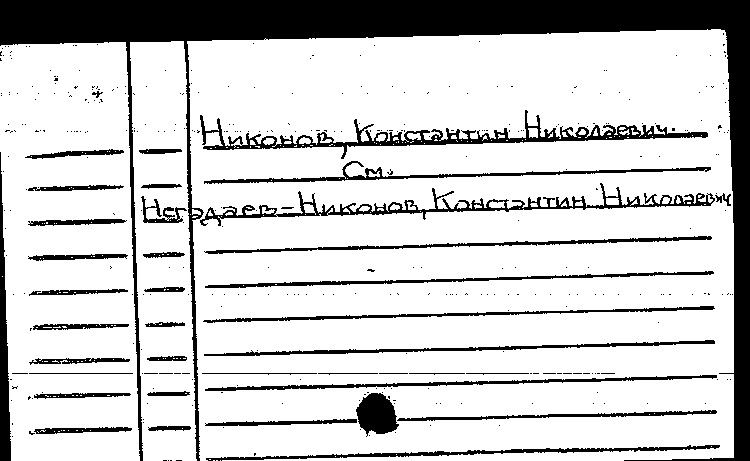 Никонов, Константин Николаевич.
См.
Негадаев-Никонов, Константин Николаевич